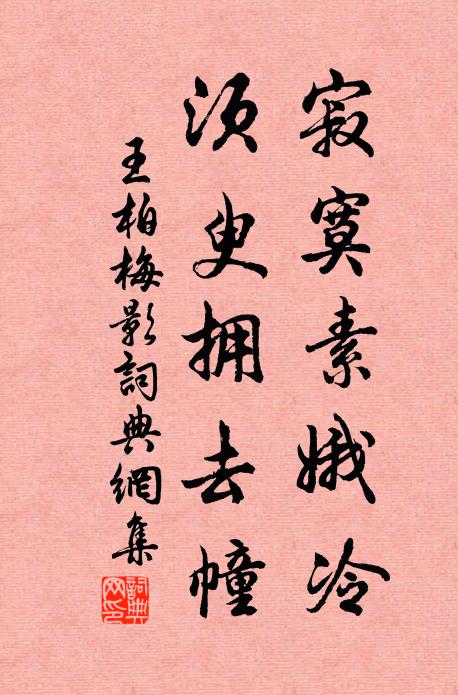 寂寞素娥冷
須臾拥去幢
王柏梅影詞典網集
詞典网印